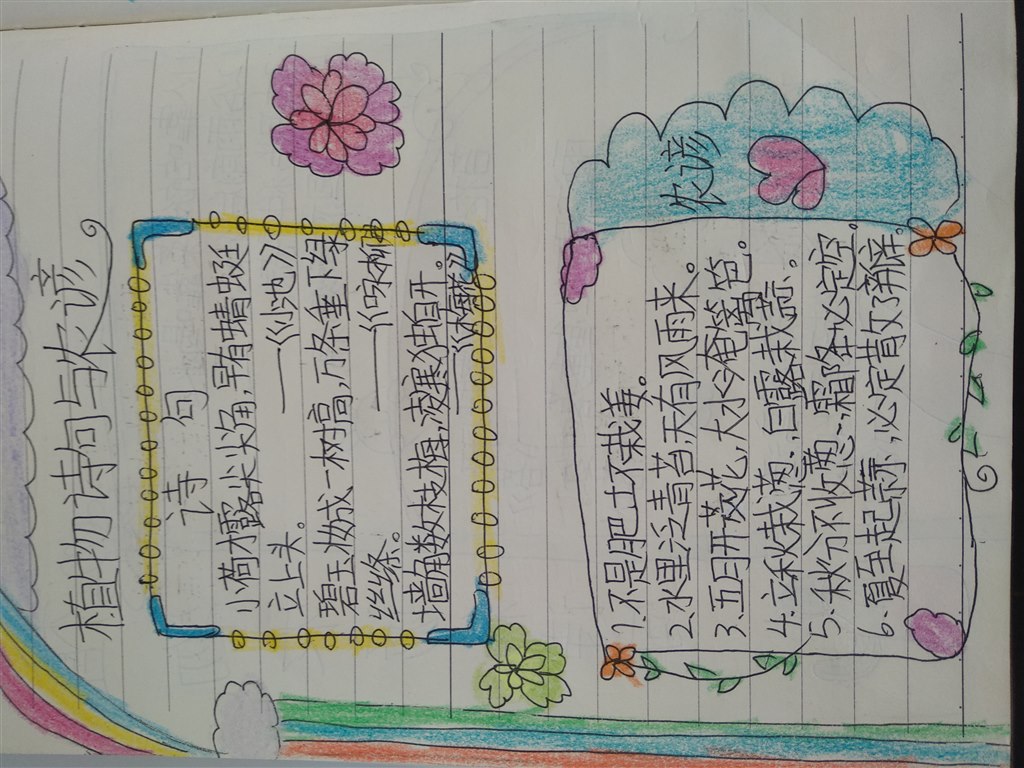 植物诗句与农谚
诗句
小荷才露尖尖角,早有蜻蜓
立上头。 ——《小池》
碧玉妆成一树高,万条垂下绿
丝绦。 ——《咏柳》
墙角数枝梅,凌寒独自开。
——《梅花》
农谚
1.不是肥土不栽姜。
2.水里泛青苔,天有风雨来。
3.五月开茭花,大水淹篱笆。
4.立秋栽葱,白露栽蒜。
5.秋分不收葱,霜降必定空。
6.夏至起蒜,必定散了瓣。